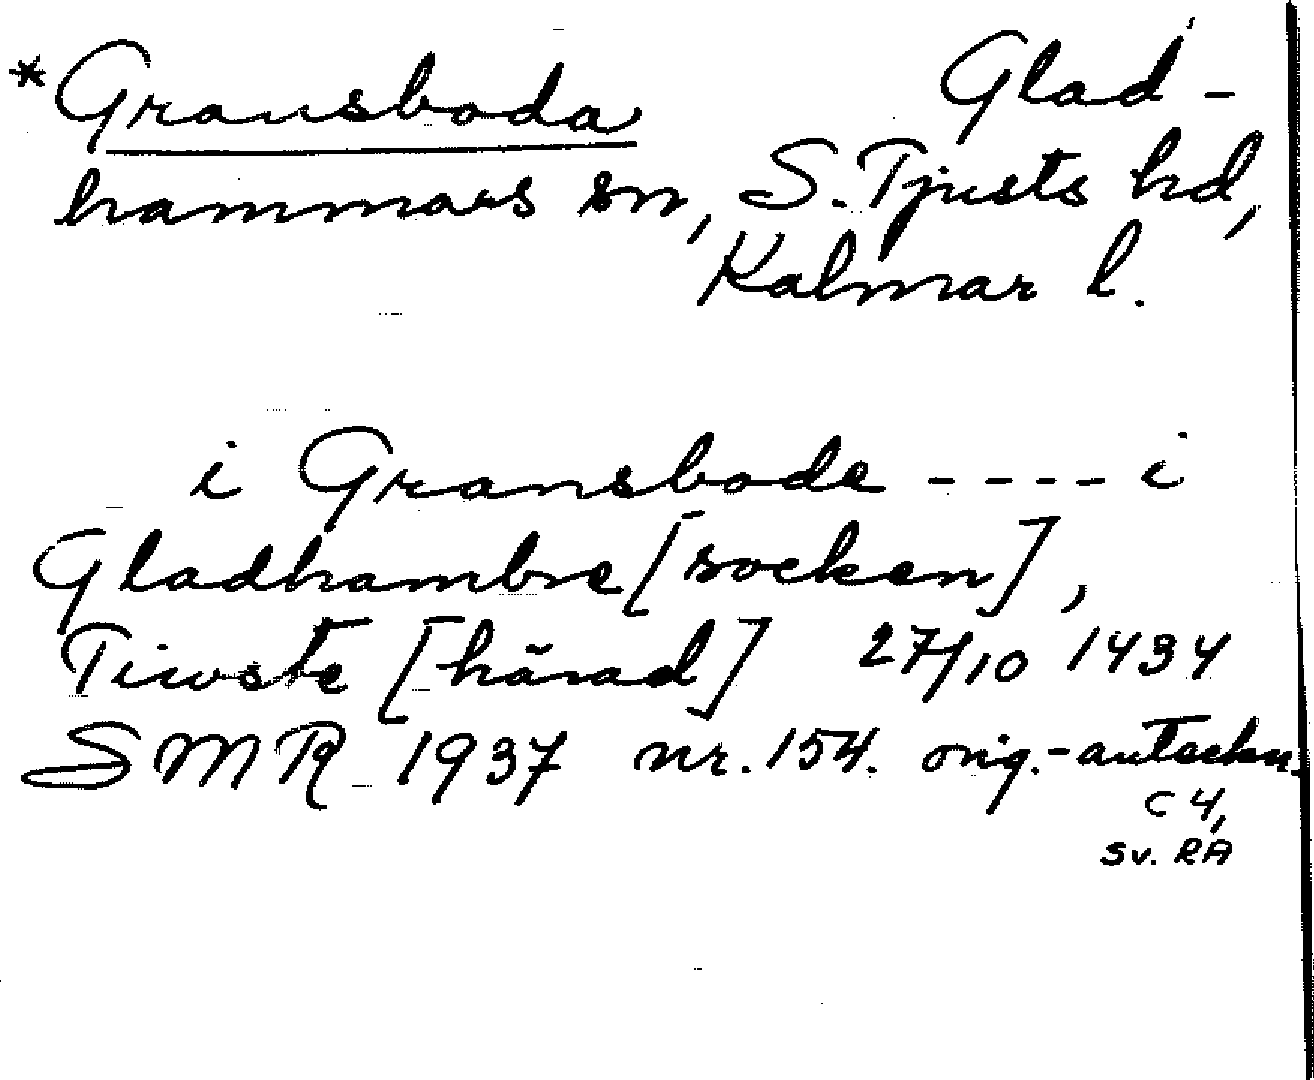 *Gransboda Glad-
hammars sn, S. Tjusts hd,
Kalmar l.
i Gransbode ---- i
Gladhambre [socken],
Tiwste [härad] 27/10 1434
SMR 1937 nr. 154. orig.-anteckn.
C 4,
sv. RA